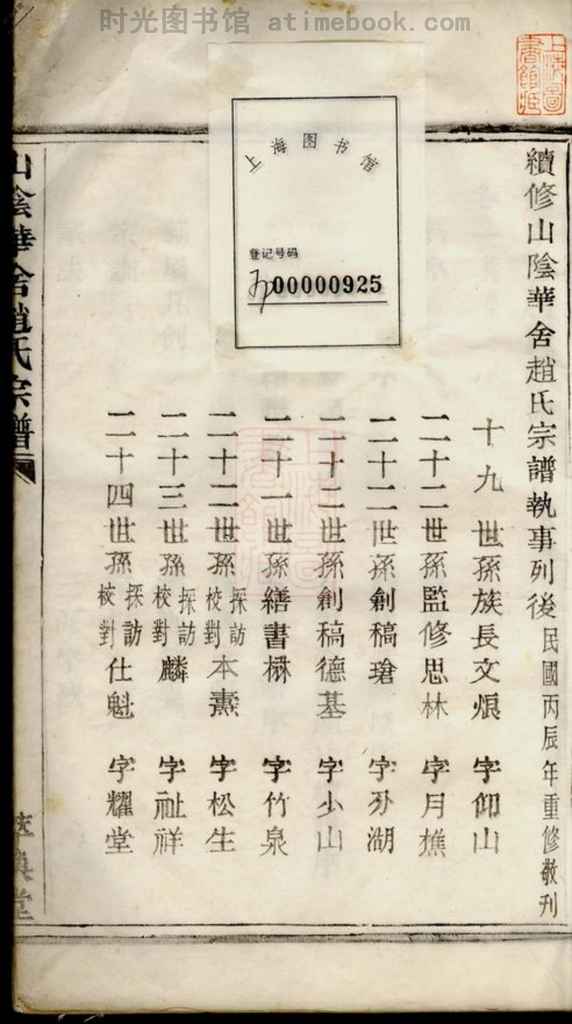 时光图书馆 atimebook.com
上海图书馆
登记号码
00000925
續修山陰華舍趙氏宗譜執事列後民國丙辰年重修敬刊
十九世孫族長文烺 字仰山
二十二世孫監修思林 字月樵
二十二世孫創稿瑲 字芬湖
二十二世孫創稿德基 字少山
二十一世孫繕書楙 字竹泉
二十二世孫採訪校對本燾 字松生
二十三世孫採訪校對麟 字祉祥
二十四世孫採訪校對仕魁 字耀堂
山陰華舍趙氏宗譜
萃渙堂